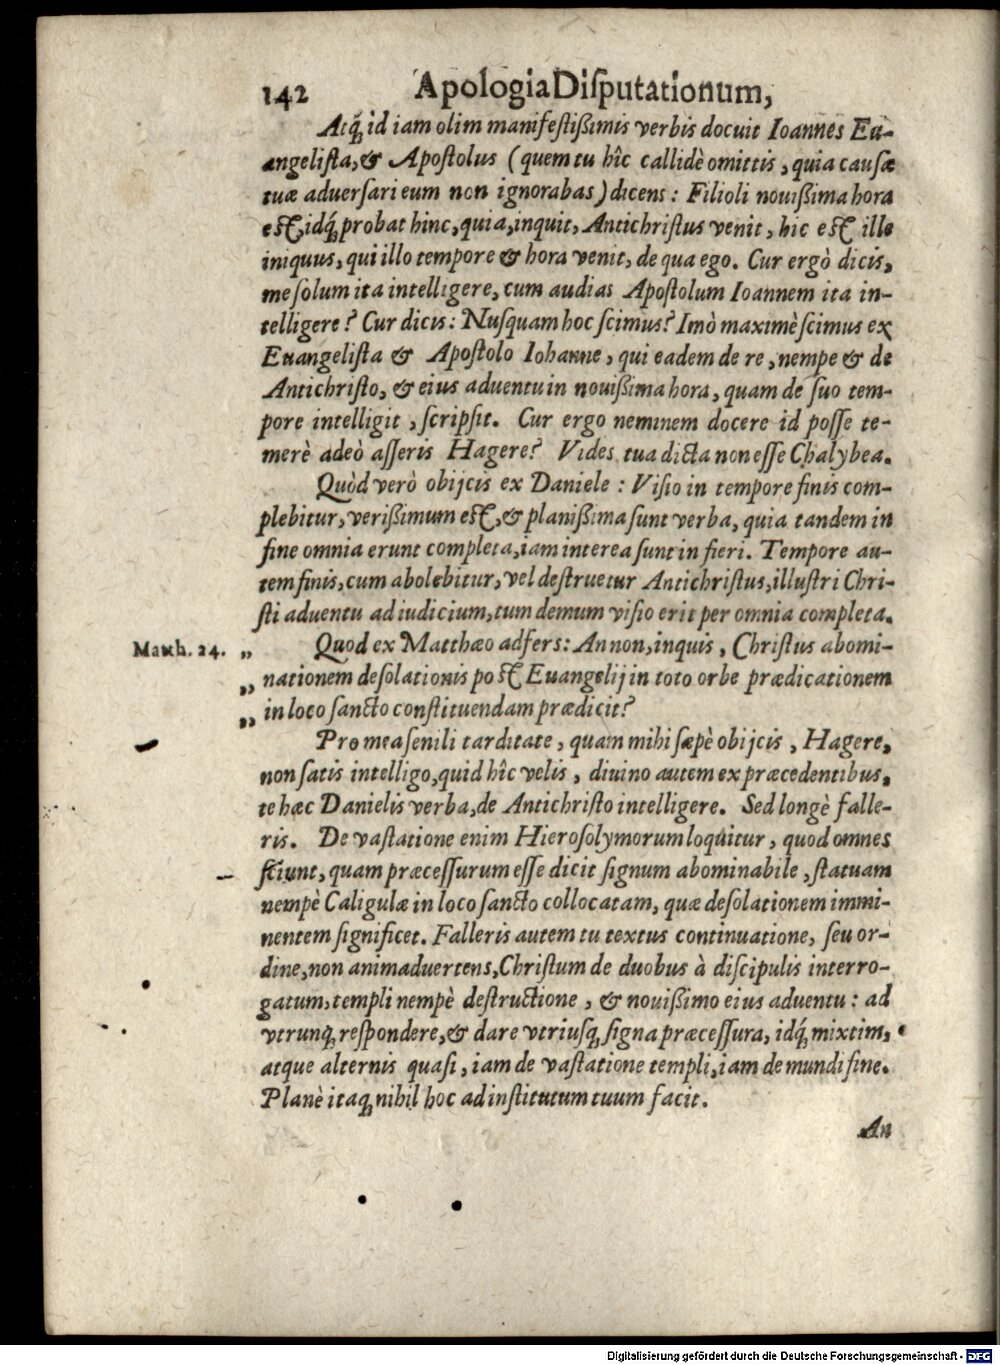 142 Apologia Disputationum,
Atq́; id iam olim manifestißimis verbis docuit Ioannes Eu-
angelista, & Apostolus (quem tu hîc callidè omittis, quia causæ
tuæ adversari eum non ignorabas) dicens: Filioli novißima hora
est, idq́; probat hinc, quia, inquit, Antichristus venit, hic est ille
iniquus, qui illo tempore & hora venit, de qua ego. Cur ergò dicis,
me solum ita intelligere, cum audias Apostolum Ioannem ita in-
telligere? Cur dicis: Nusquam hoc scimus? Imò maximè scimus ex
Euangelista & Apostolo Iohanne, qui eadem de re, nempe & de
Antichristo, & eius adventu in novißima hora, quam de suo tem-
pore intelligit, scripsit. Cur ergo neminem docere id posse te-
merè adeò asseris Hagere? Vides tua dicta non esse Chalybea.
Quòd verò obijcis ex Daniele: Visio in tempore finis com-
plebitur, verißimum est, & planißima sunt verba, quia tandem in
fine omnia erunt completa, iam interea sunt in fieri. Tempore au-
tem finis, cum abolebitur, vel destruetur Antichristus, illustri Chri-
sti adventu ad iudicium, tum demum visio erit per omnia completa.
Matth. 24. „ Quod ex Matthæo adfers: Annon, inquis, Christus abomi-
„ nationem desolationis post Euangelij in toto orbe prædicationem
„ in loco sancto constituendam prædicit?
Pro mea senili tarditate, quam mihi sæpè obijcis, Hagere,
non satis intelligo, quid hîc velis, divino autem ex præcedentibus,
te hæc Danielis verba, de Antichristo intelligere. Sed longè falle-
ris. De vastatione enim Hierosolymorum loquitur, quod omnes
sciunt, quam præcessurum esse dicit signum abominabile, statuam
nempè Caligulæ in loco sancto collocatam, quæ desolationem immi-
nentem significet. Falleris autem tu textus continuatione, seu or-
dine, non animadvertens, Christum de duobus à discipulis interro-
gatum, templi nempè destructione, & novißimo eius adventu: ad
vtrunq; respondere, & dare vtriusq; signa præcessura, idq́; mixtim,
atque alternis quasi, iam de vastatione templi, iam de mundi fine.
Planè itaq; nihil hoc ad institutum tuum facit.
An
Digitalisierung gefördert durch die Deutsche Forschungsgemeinschaft - DFG